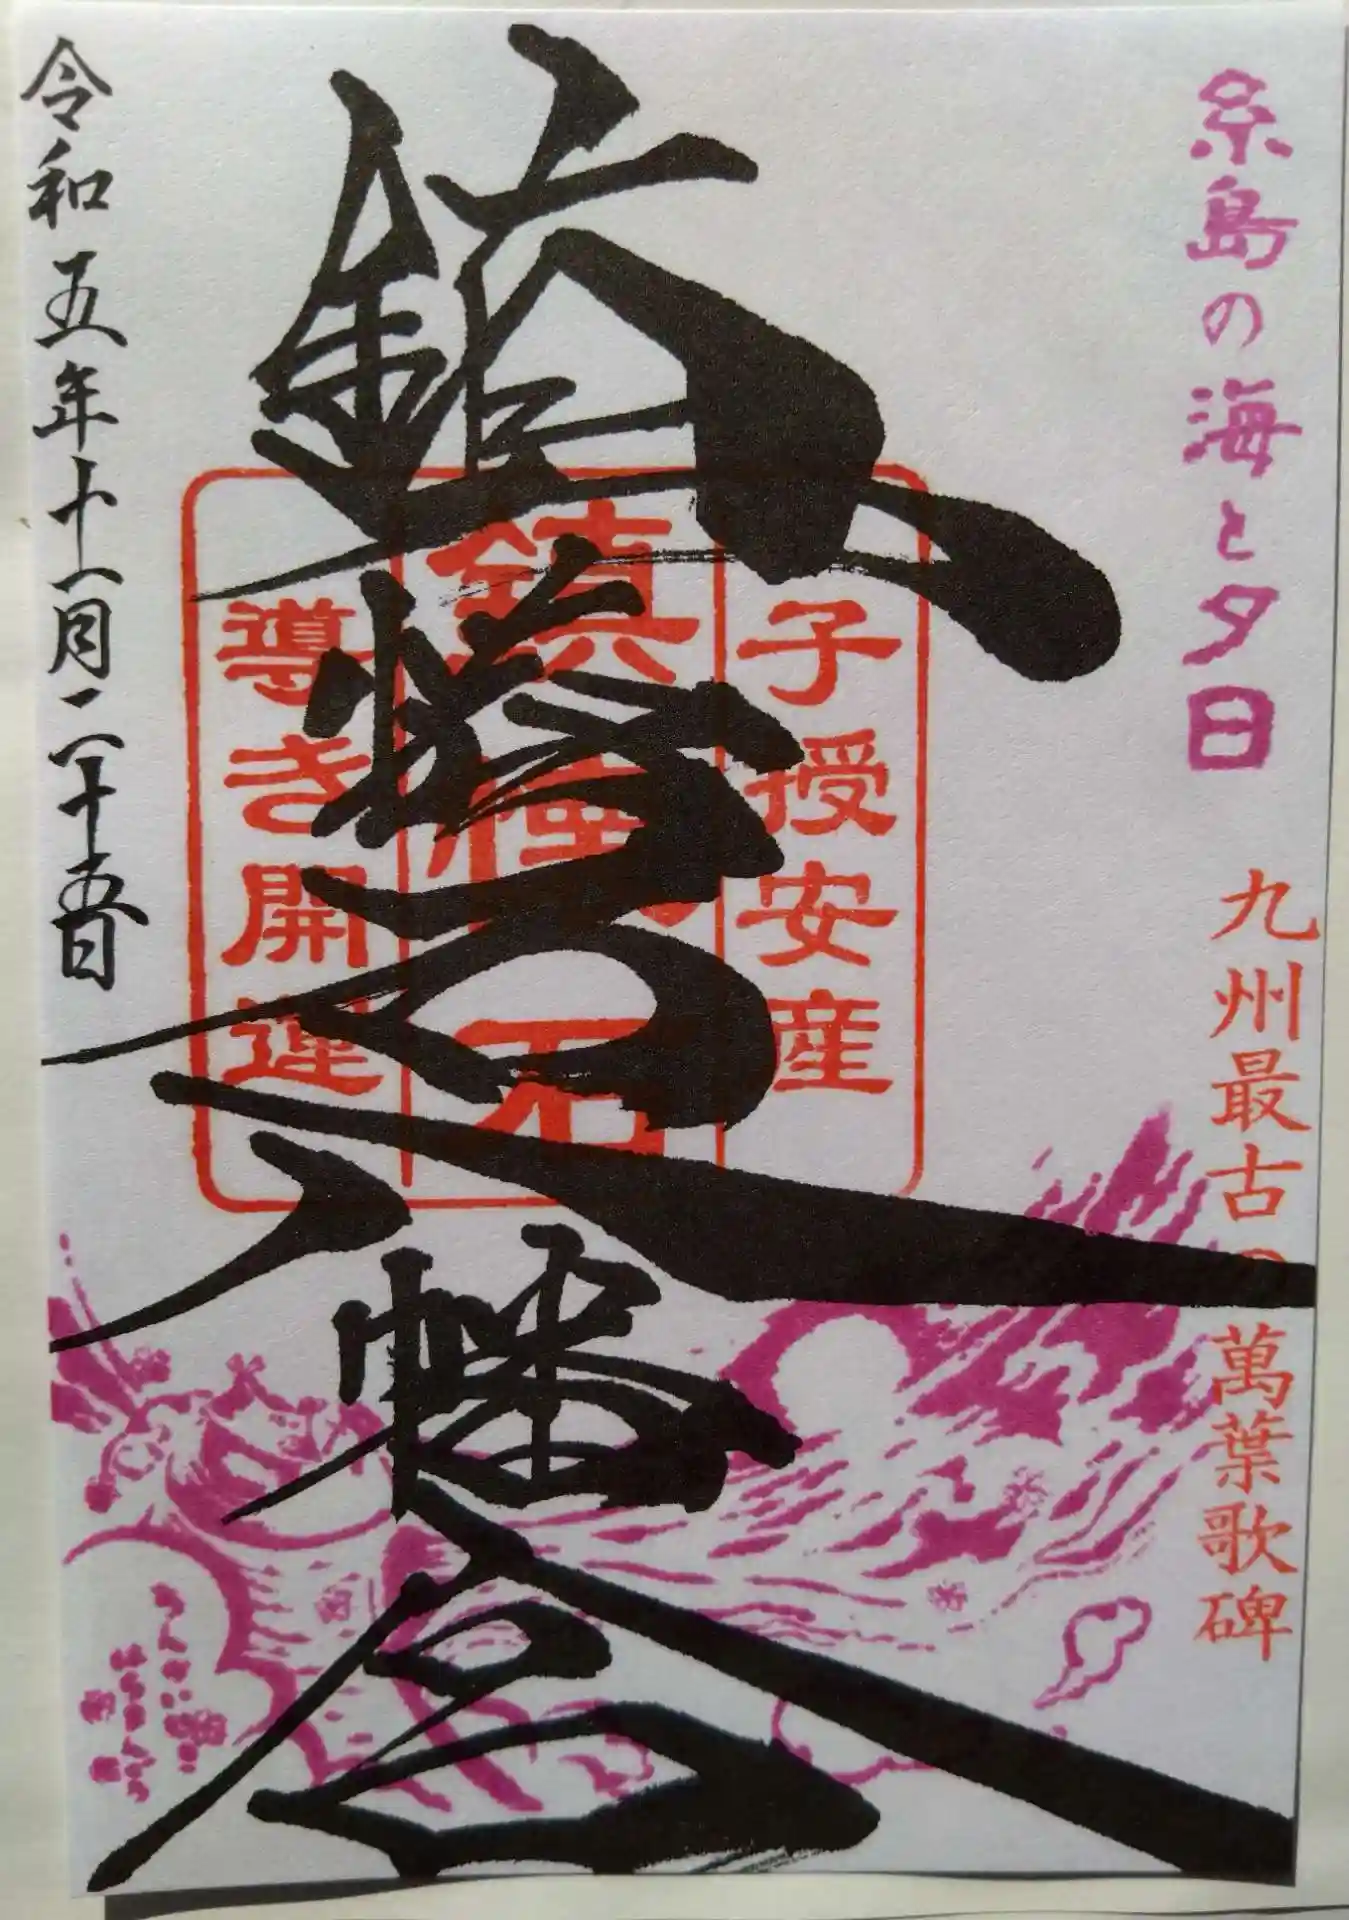 糸島の海と夕日
九州最古の萬葉歌碑
鎮懐石八幡宮
子授安産
鎮懐石
導き開運
令和五年十一月二十五日